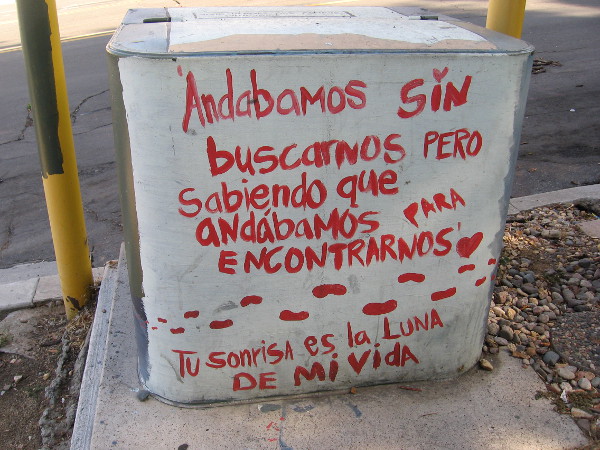 'Andabamos sin
buscarnos pero
sabiendo que
andábamos para
encontrarnos'
Tu sonrisa es la luna
de mi vida